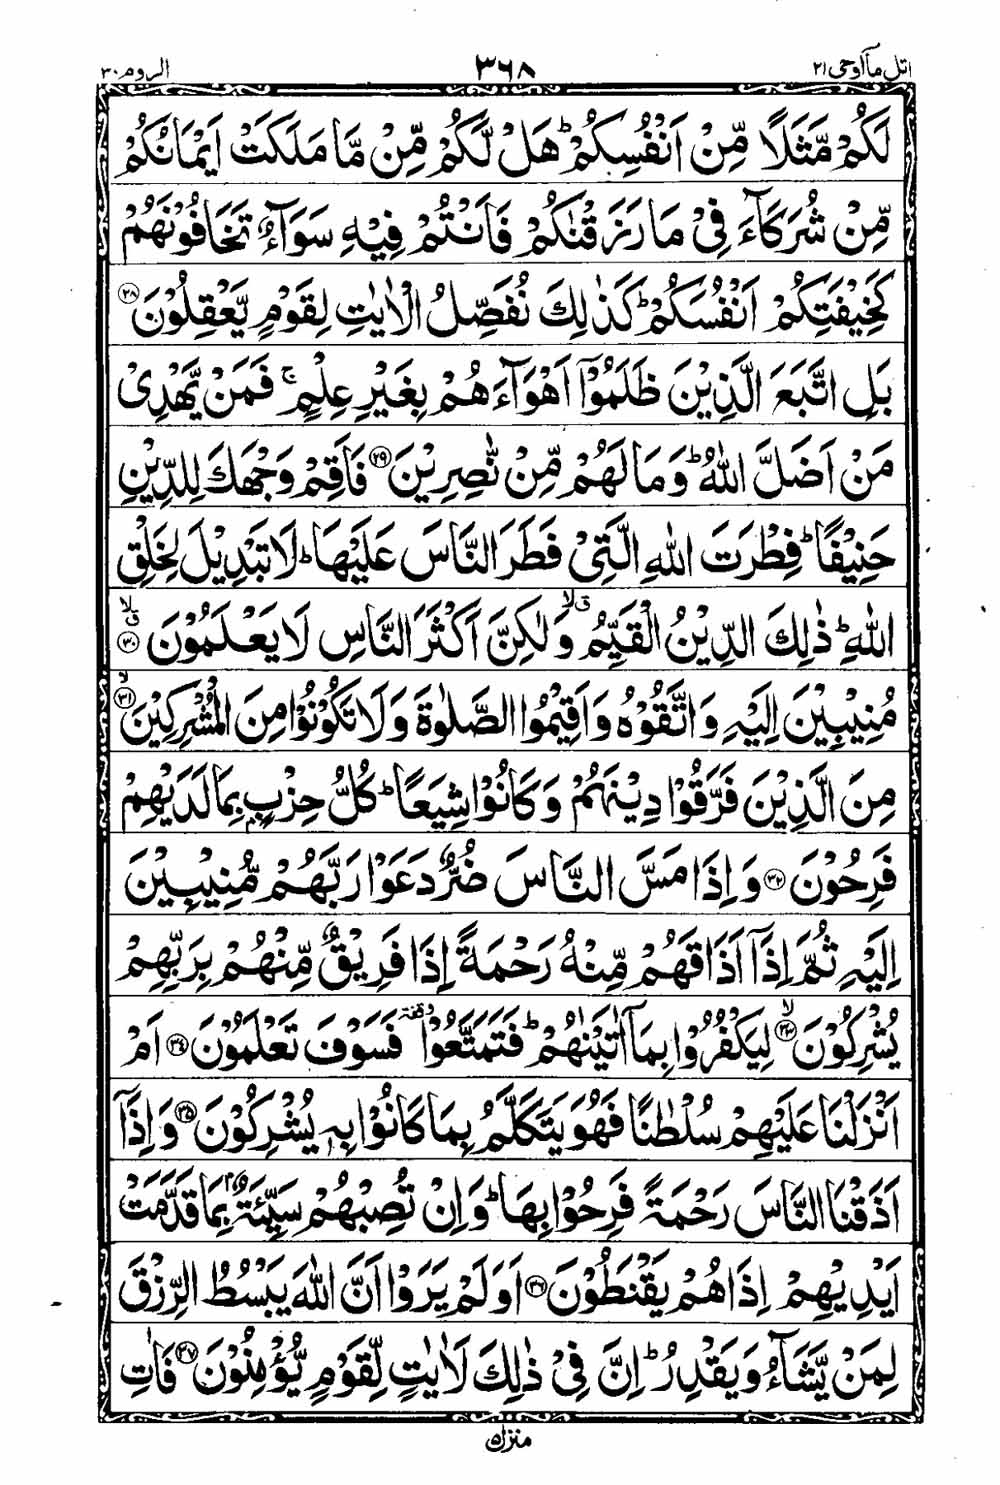 اتل مآ اوحی ۲۱
۳۶۸
الروم ۳۰
لَكُمْ مَّثَلًا مِّنْ اَنْفُسِكُمْ ؕ هَلْ لَّكُمْ مِّنْ مَّا مَلَكَتْ اَيْمَانُكُمْ
مِّنْ شُرَكَآءَ فِيْ مَا رَزَقْنٰكُمْ فَاَنْتُمْ فِيْهِ سَوَآءٌ تَخَافُوْنَهُمْ
كَخِيْفَتِكُمْ اَنْفُسَكُمْ ؕ كَذٰلِكَ نُفَصِّلُ الْاٰيٰتِ لِقَوْمٍ يَّعْقِلُوْنَ ﴿۲۸﴾
بَلِ اتَّبَعَ الَّذِيْنَ ظَلَمُوْٓا اَهْوَآءَهُمْ بِغَيْرِ عِلْمٍ ۚ فَمَنْ يَّهْدِيْ
مَنْ اَضَلَّ اللّٰهُ ؕ وَمَا لَهُمْ مِّنْ نّٰصِرِيْنَ ﴿۲۹﴾ فَاَقِمْ وَجْهَكَ لِلدِّيْنِ
حَنِيْفًا ؕ فِطْرَتَ اللّٰهِ الَّتِيْ فَطَرَ النَّاسَ عَلَيْهَا ؕ لَا تَبْدِيْلَ لِخَلْقِ
اللّٰهِ ؕ ذٰلِكَ الدِّيْنُ الْقَيِّمُ ۙق وَلٰكِنَّ اَكْثَرَ النَّاسِ لَا يَعْلَمُوْنَ ﴿۳۰﴾ ۙق
مُنِيْبِيْنَ اِلَيْهِ وَاتَّقُوْهُ وَاَقِيْمُوا الصَّلٰوةَ وَلَا تَكُوْنُوْا مِنَ الْمُشْرِكِيْنَ ﴿۳۱﴾ ۙ
مِنَ الَّذِيْنَ فَرَّقُوْا دِيْنَهُمْ وَكَانُوْا شِيَعًا ؕ كُلُّ حِزْبٍۭ بِمَا لَدَيْهِمْ
فَرِحُوْنَ ﴿۳۲﴾ وَاِذَا مَسَّ النَّاسَ ضُرٌّ دَعَوْا رَبَّهُمْ مُّنِيْبِيْنَ
اِلَيْهِ ثُمَّ اِذَآ اَذَاقَهُمْ مِّنْهُ رَحْمَةً اِذَا فَرِيْقٌ مِّنْهُمْ بِرَبِّهِمْ
يُشْرِكُوْنَ ﴿۳۳﴾ ۙ لِيَكْفُرُوْا بِمَآ اٰتَيْنٰهُمْ ؕ فَتَمَتَّعُوْا وقفة فَسَوْفَ تَعْلَمُوْنَ ﴿۳۴﴾ اَمْ
اَنْزَلْنَا عَلَيْهِمْ سُلْطٰنًا فَهُوَ يَتَكَلَّمُ بِمَا كَانُوْا بِهٖ يُشْرِكُوْنَ ﴿۳۵﴾ وَاِذَآ
اَذَقْنَا النَّاسَ رَحْمَةً فَرِحُوْا بِهَا ؕ وَاِنْ تُصِبْهُمْ سَيِّئَةٌۢ بِمَا قَدَّمَتْ
اَيْدِيْهِمْ اِذَا هُمْ يَقْنَطُوْنَ ﴿۳۶﴾ اَوَلَمْ يَرَوْا اَنَّ اللّٰهَ يَبْسُطُ الرِّزْقَ
لِمَنْ يَّشَآءُ وَيَقْدِرُ ؕ اِنَّ فِيْ ذٰلِكَ لَاٰيٰتٍ لِّقَوْمٍ يُّؤْمِنُوْنَ ﴿۳۷﴾ فَاٰتِ
منزل ۵